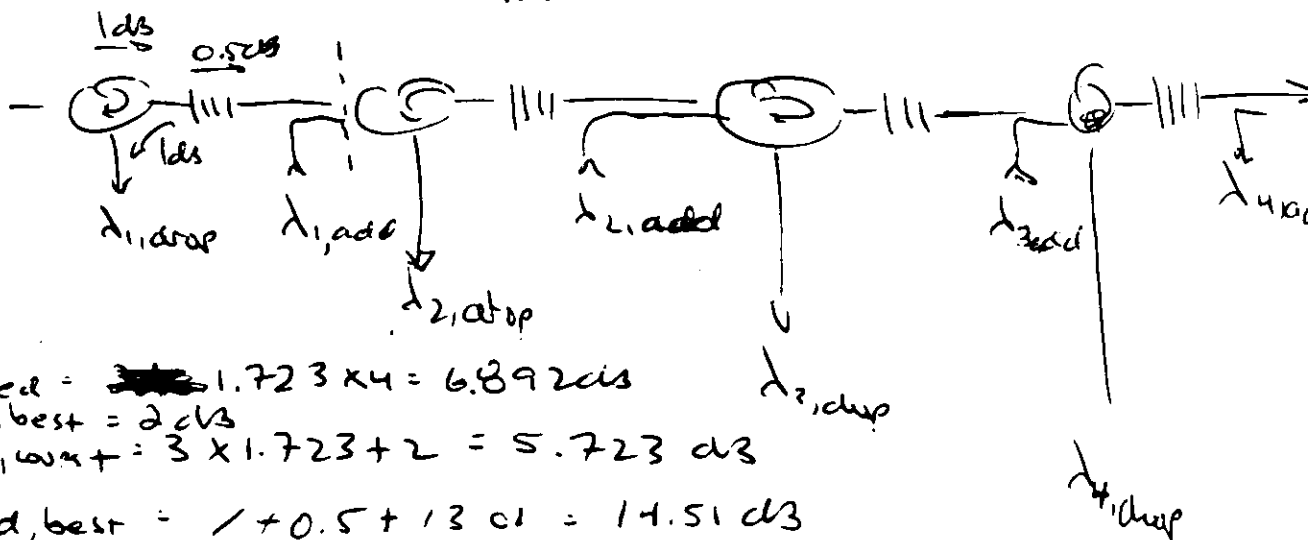 1dB
0.5dB
1dB
λ1,drop
λ1,add
λ2,drop
λ2,add
λ3,add
λ4,ad
λ3,drop
λ4,drop
ed = 1.723 x 4 = 6.892 dB
best = 2 dB
,worst = 3 x 1.723 + 2 = 5.723 dB
d,best = 1 + 0.5 + 13 = 14.51 dB